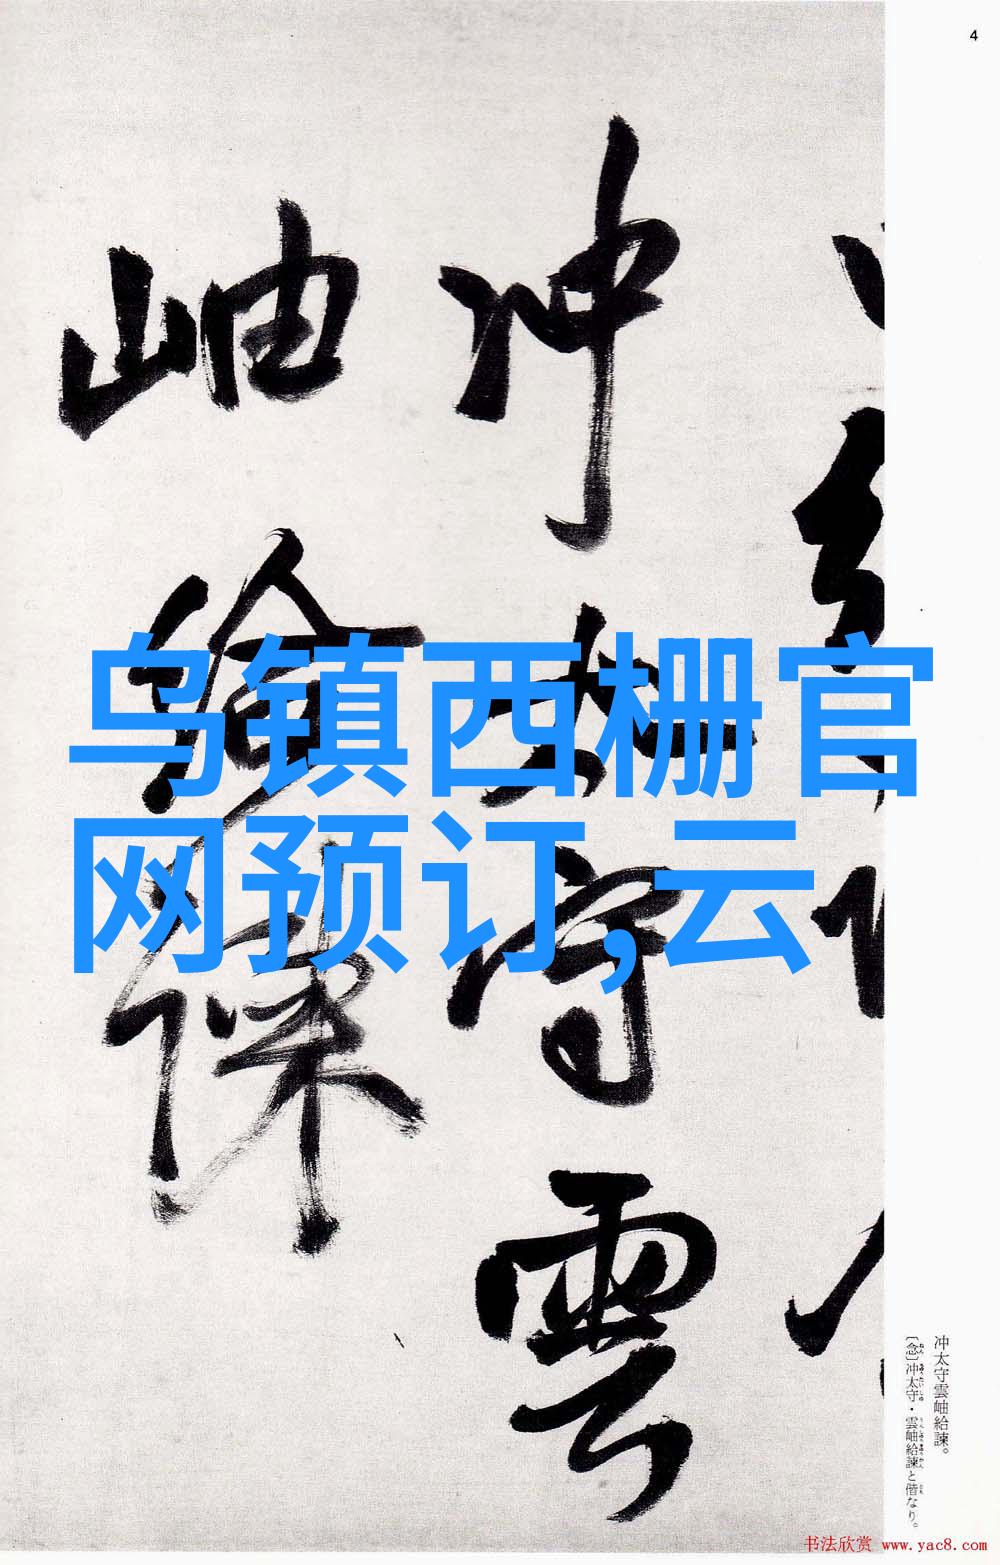 4
冲太守雲
岫給諫
乌镇西栅官
网预订,云
冲太守雲岫給諫。
〔念〕冲太守・雲岫給諫と偕なり。
书法欣赏 www.yac8.com